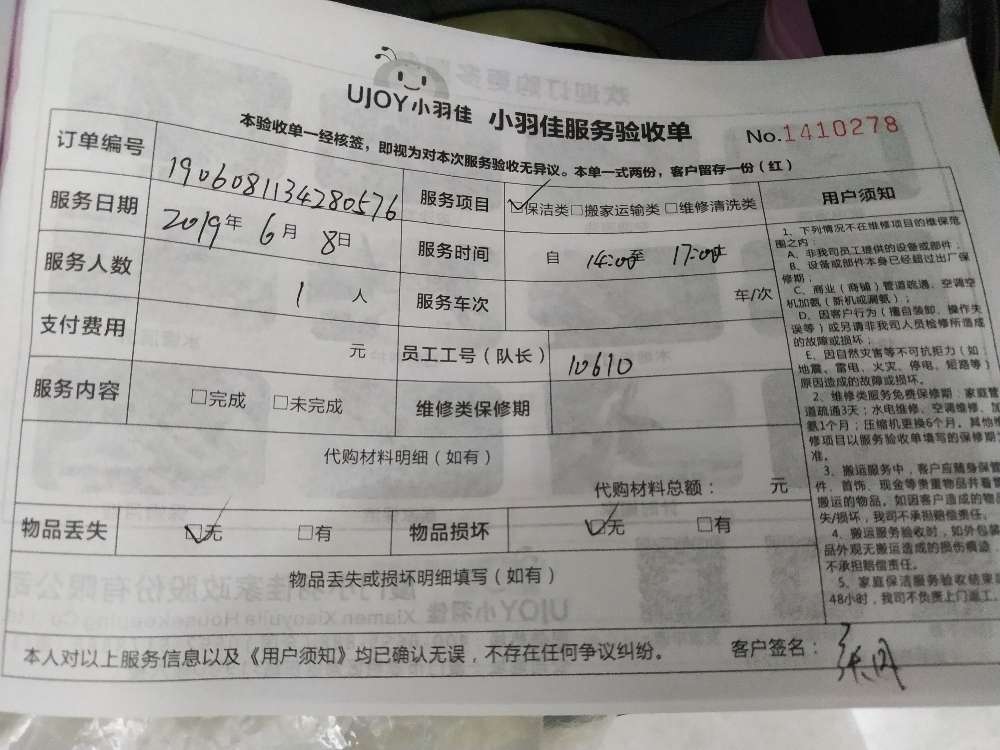 UJOY小羽佳 小羽佳服务验收单 No.1410278
本验收单一经核签，即视为对本次服务验收无异议。本单一式两份，客户留存一份（红）
订单编号 190608113428057​6 服务项目 ☑保洁类□搬家运输类□维修清洗类
服务日期 2019年 6月 8日 服务时间 自 14:00至 17:00时
服务人数 1 人 服务车次 车/次
支付费用 元 员工工号（队长） 10610
服务内容 □完成 □未完成 维修类保修期
代购材料明细（如有）
代购材料总额： 元
物品丢失 ☑无 □有 物品损坏 ☑无 □有
物品丢失或损坏明细填写（如有）
本人对以上服务信息以及《用户须知》均已确认无误，不存在任何争议纠纷。 客户签名：
用户须知
1、下列情况不在维修项目的维保范
围之内：
A、非我司员工提供的设备或部件；
B、设备或部件本身已经超过出厂保
修期；
C、商业（商铺）管道疏通、空调空
机加氨（新机或漏氨）；
D、因客户行为（擅自装卸、操作失
误等）或另请非我司人员检修所造成
的故障或损坏；
E、因自然灾害等不可抗拒力（如：
地震、雷电、火灾、停电、短路等）
原因造成的故障或损坏。
2、维修类服务免费保修期：家庭管
道疏通3天；水电维修、空调维修、加
氨1个月；压缩机更换6个月。其他维
修项目以服务验收单填写的保修期为
准。
3、搬运服务中，客户应随身保管
件、首饰、现金等贵重物品并看管
搬运的物品，如因客户造成的物品
失/损坏，我司不承担赔偿责任。
4、搬运服务验收时，如外包装
品外观无搬运造成的损伤痕迹
不承担赔偿责任。
5、家庭保洁服务验收结束
48小时，我司不负责上门返工。